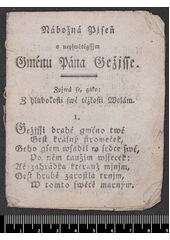 Nábožná Pjseň
o neyswětěgssjm
Gménu Pána Gežjsse.
Zpjwá se, gako:
Z hlubokosti swé těžkosti Wolám.
1.
Gežjssi drahé gméno twé
Gest krásný stromeček,
Geho gsem wsadil w srdce swé,
Po něm taužjm wssecek:
Ač zahrádka kwětauc mjnjm,
Gest hrubě zarostlá trnjm,
W tomto swětě marným.